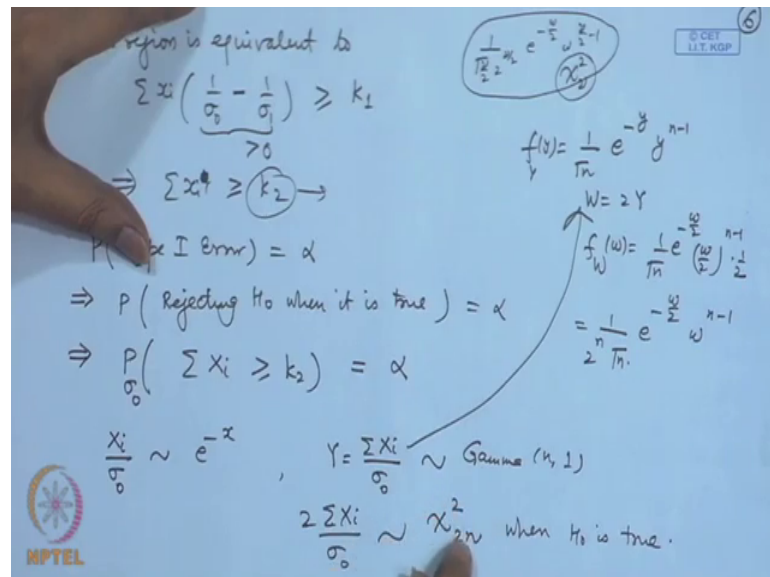 region is equivalent to
Σ xi ( 1/σ0 - 1/σ1 ) ≥ k1
>0
⇒ Σ xi ≥ k2 →
I Error) = α
⇒ P ( Rejecting H0 when it is true ) = α
⇒ Pσ0 ( Σ Xi ≥ k2 ) = α
Xi/σ0 ~ e^-x , Y = ΣXi/σ0 ~ Gamma (n, 1)
2ΣXi/σ0 ~ χ²2n when H0 is true.
6
© CET
I.I.T. KGP
e^-w/2 w
fY(y) = 1/Γn e^-y y^n-1
W = 2Y
fW(w) = 1/Γn e^-w/2 (w/2)^n-1 · 1/2
= 1/2^n Γn e^-w/2 w^n-1
NPTEL